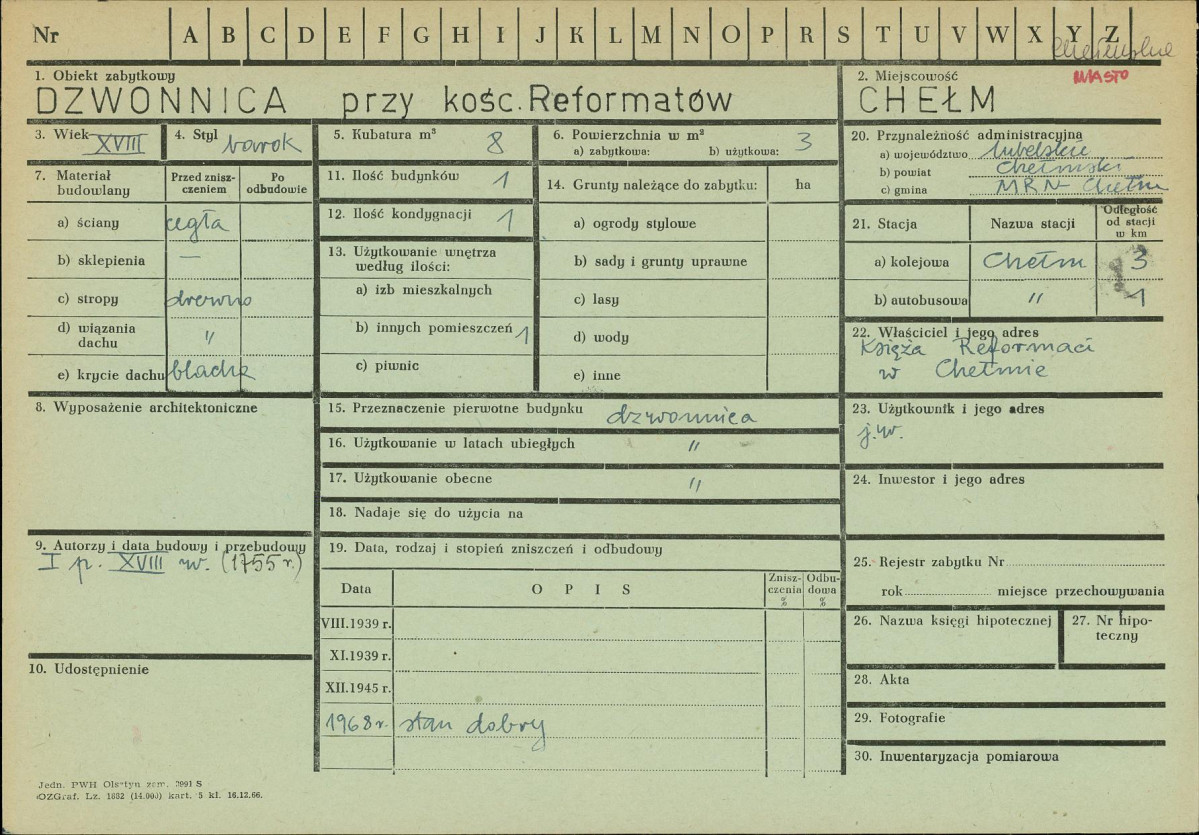 Nr A B C D E F G H I J K L M N O P R S T U V W X Y Z
MIASTO
1. Obiekt zabytkowy
DZWONNICA przy kośc. Reformatów
2. Miejscowość
CHEŁM
3. Wiek XVIII
4. Styl barok
5. Kubatura m³ 8
6. Powierzchnia w m²
a) zabytkowa: b) użytkowa: 3
7. Materiał budowlany
Przed zniszczeniem
Po odbudowie
a) ściany cegła
b) sklepienia —
c) stropy drewno
d) wiązania dachu "
e) krycie dachu blacha
8. Wyposażenie architektoniczne
9. Autorzy i data budowy i przebudowy
I p. XVIII w. (1755 r.)
10. Udostępnienie
11. Ilość budynków 1
12. Ilość kondygnacji 1
13. Użytkowanie wnętrza według ilości:
a) izb mieszkalnych
b) innych pomieszczeń 1
c) piwnic
14. Grunty należące do zabytku: ha
a) ogrody stylowe
b) sady i grunty uprawne
c) lasy
d) wody
e) inne
15. Przeznaczenie pierwotne budynku dzwonnica
16. Użytkowanie w latach ubiegłych "
17. Użytkowanie obecne "
18. Nadaje się do użycia na
19. Data, rodzaj i stopień zniszczeń i odbudowy
Data OPIS Zniszczenia % Odbudowa %
VIII.1939 r.
XI.1939 r.
XII.1945 r.
1968 r. stan dobry
20. Przynależność administracyjna
a) województwo lubelskie
b) powiat chełmski
c) gmina MRN Chełm
21. Stacja Nazwa stacji Odległość od stacji w km
a) kolejowa Chełm 3
b) autobusowa " 1
22. Właściciel i jego adres
Księża Reformaci
w Chełmie
23. Użytkownik i jego adres
j.w.
24. Inwestor i jego adres
25. Rejestr zabytku Nr
rok miejsce przechowywania
26. Nazwa księgi hipotecznej
27. Nr hipoteczny
28. Akta
29. Fotografie
30. Inwentaryzacja pomiarowa
Jedn. PWH Olsztyn zam. 3991 S
OZGraf. Lz. 1882 (14.000) kart. 5 kl. 16.12.66.